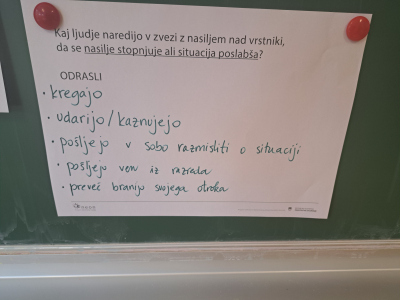 Kaj ljudje naredijo v zvezi z nasiljem nad vrstniki,
da se nasilje stopnjuje ali situacija poslabša?
ODRASLI
• kregajo
• udarijo/kaznujejo
• pošljejo v sobo razmisliti o situaciji
• pošljejo ven iz razreda
• preveč branijo svojega otroka